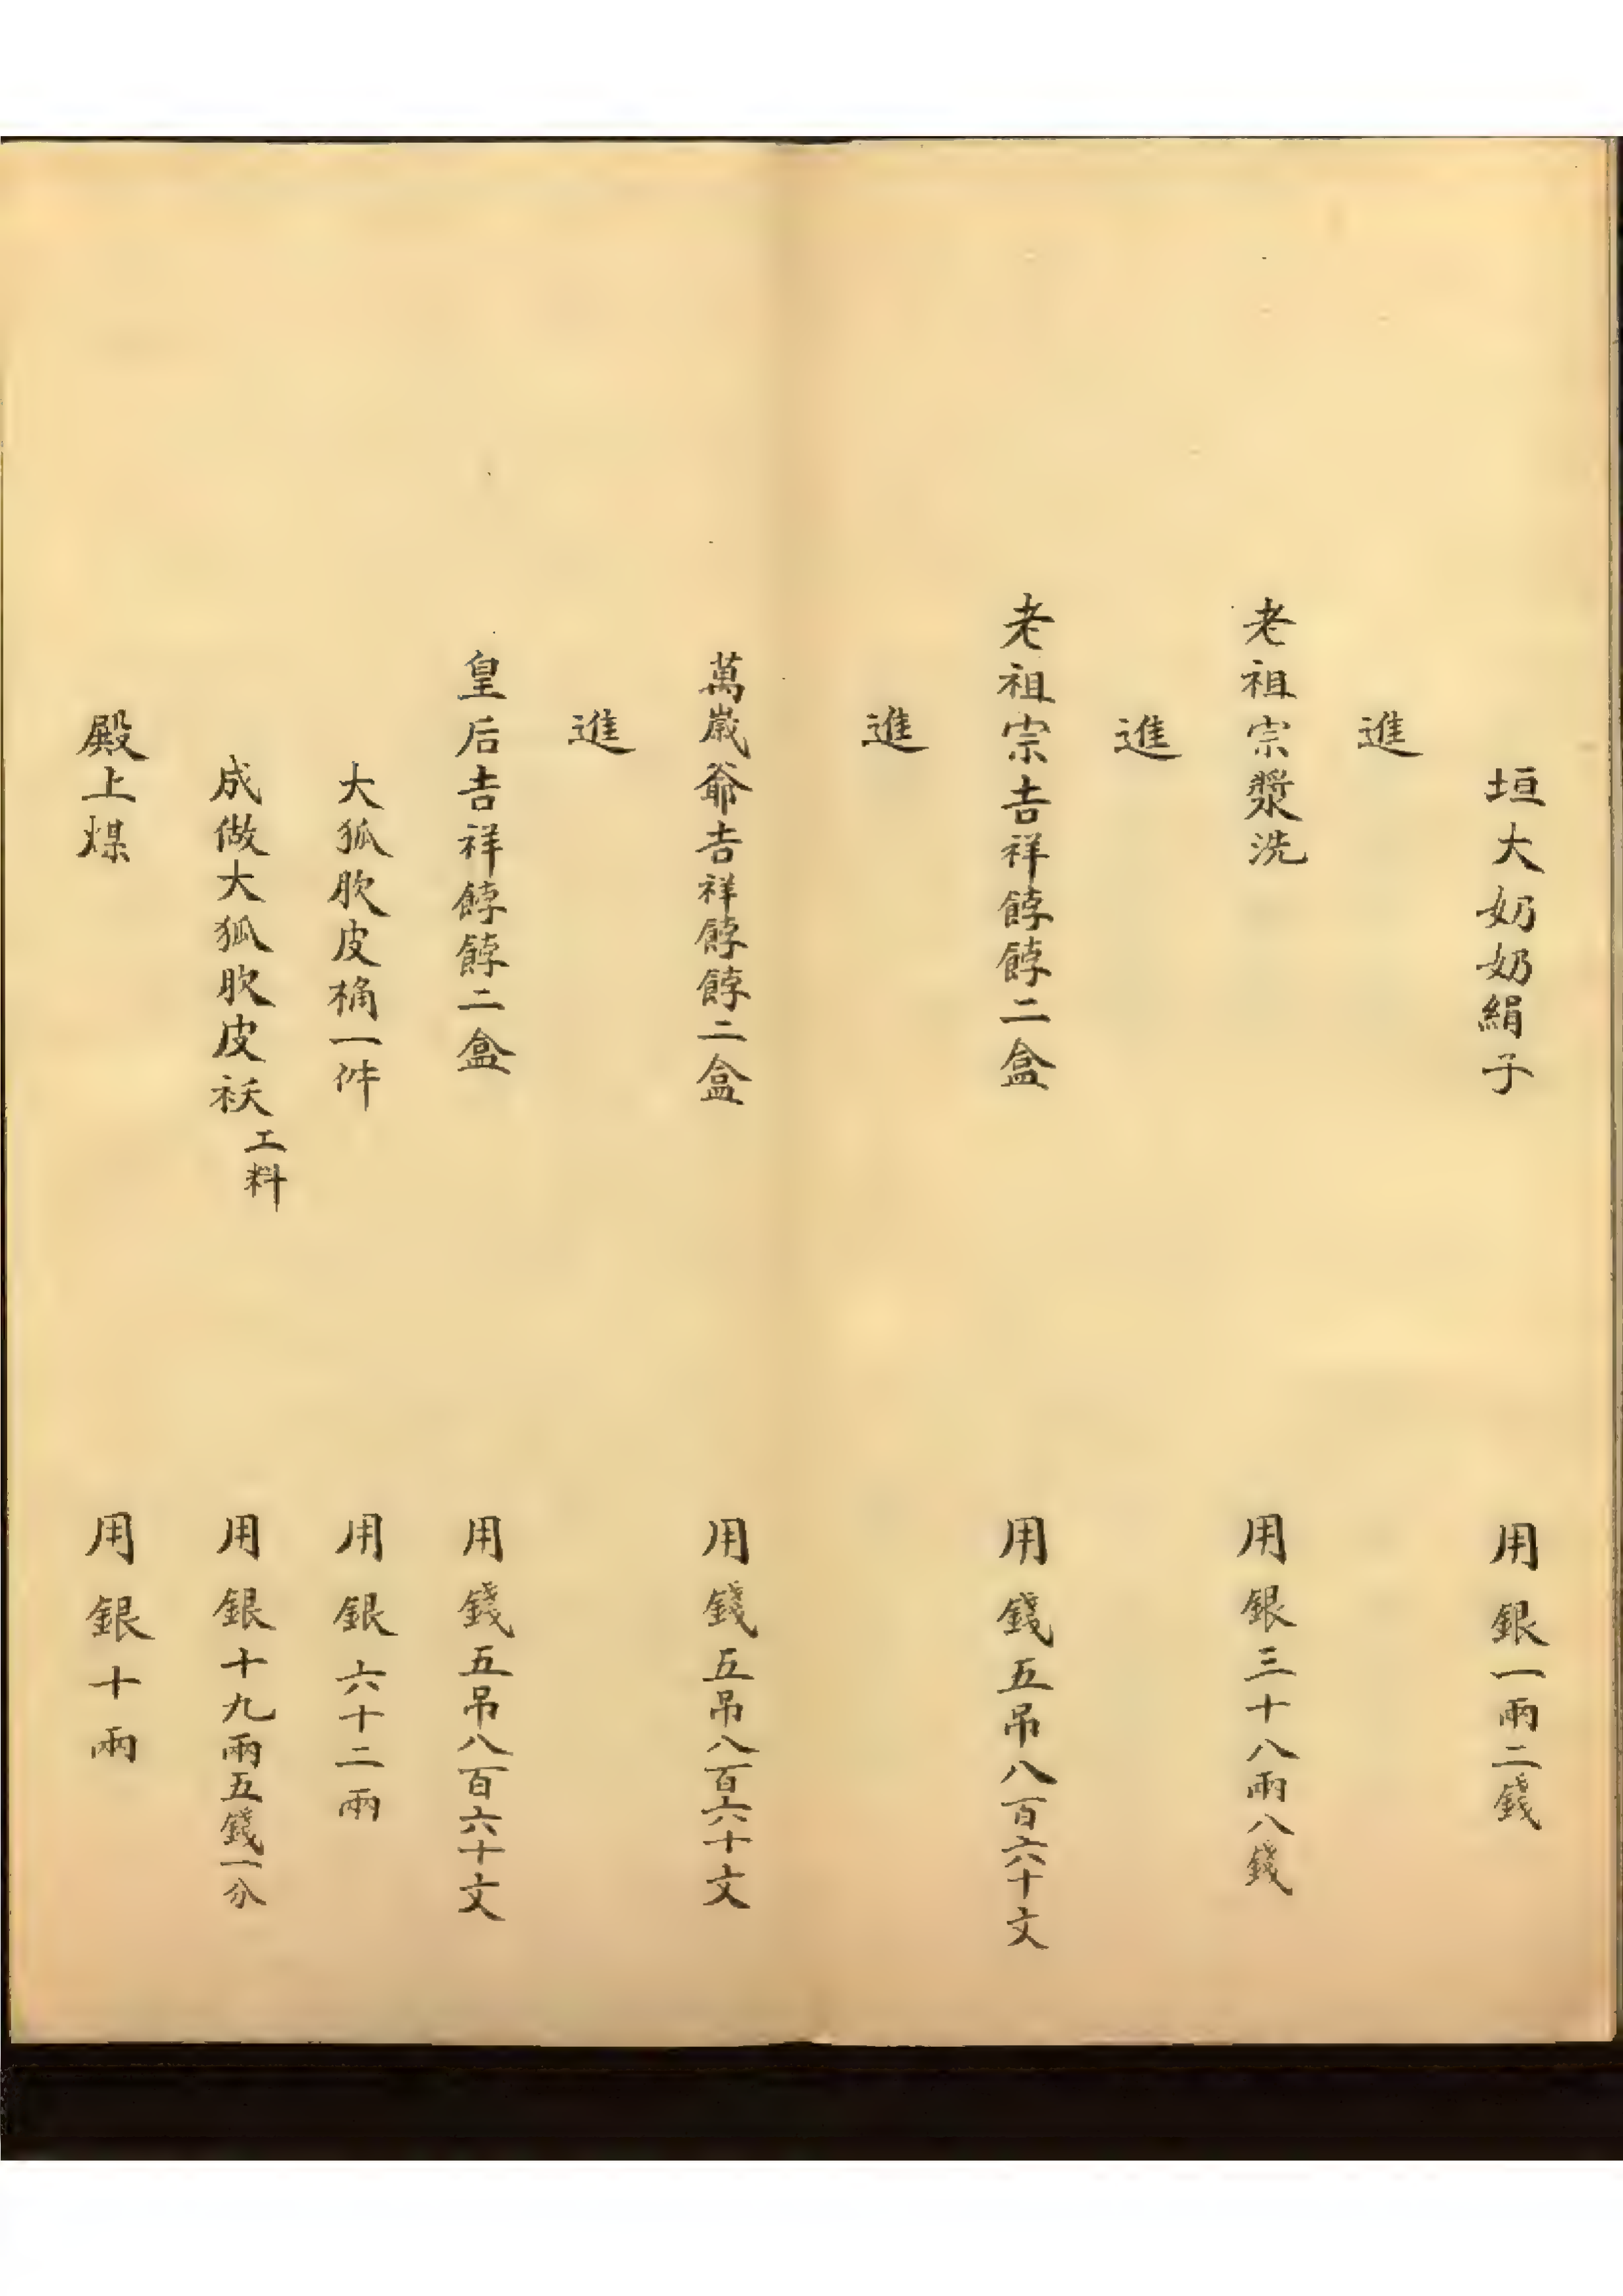 垣大奶奶絹子　用銀一兩二錢
進
老祖宗漿洗　用銀三十八兩八錢
進
老祖宗吉祥餑餑二盒　用錢五吊八百六十文
進
萬歲爺吉祥餑餑二盒　用錢五吊八百六十文
進
皇后吉祥餑餑二盒　用錢五吊八百六十文
大狐肷皮桶一件　用銀六十二兩
成做大狐肷皮袄工料　用銀十九兩五錢一分
殿上煤　用銀十兩